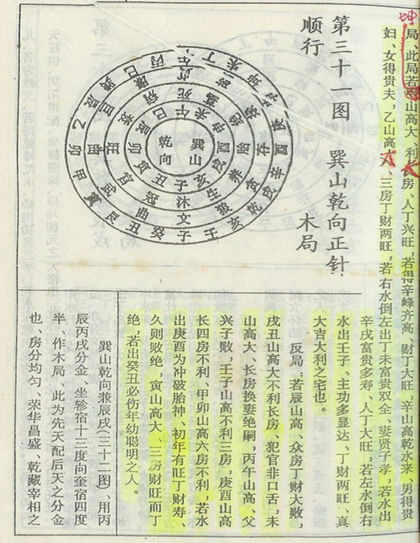 坤
局、此局若山高大、大利长房、人丁兴旺，若得辛峰齐高，财丁大旺，辛山高乾水来，男得贵
妇，女得贵夫，乙山高大，三房丁财两旺，若右水倒左出丁未富贵双全，妻贤子孝，若水出
辛戌富贵多寿，人丁大旺，若左水倒右
水出壬子、主功多显达、丁财两旺、真
大吉大利之宅也。
反局：若辰山高、众房丁财大败，
戌丑山高大不利长房，犯官非口舌，未
山高大、长房换妻绝嗣，丙午山高、父
兴子败，壬子山高不利三房，庚酉山高
长四房不利，甲卯山高六房不利，若水
出庚酉为冲破胎神，初年有旺丁财寿
久则败绝，寅山高大、三房财旺而丁
绝，若出癸丑必伤年幼聪明之人。
巽山乾向兼辰戌（三十二图、用丙
辰丙戌分金、坐轸宿十三度向奎宿四度
半、作木局，此为先天配后天之分金
也、房分均匀、荣华昌盛、乾藏宰相之
第三十一图 巽山乾向正针
顺行 木局
巽山
乾向
子亥戌酉申未午巳辰卯寅丑
沐生养胎绝墓死病衰旺冠
文贪
曲武
子壬亥乾戌辛酉
丁午丙巳巽辰乙卯甲寅艮丑癸